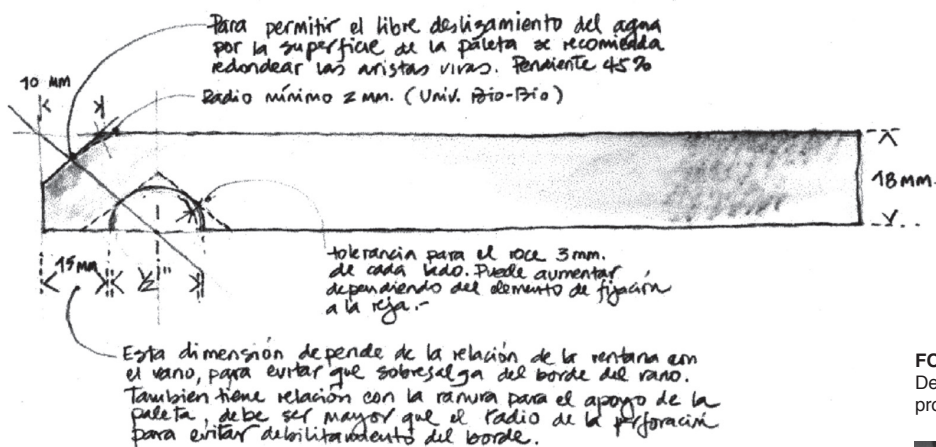 Para permitir el libre deslizamiento del agua
por la superficie de la paleta se recomienda
redondear las aristas vivas. Pendiente 45%
Radio mínimo 2 mm. (Univ. Bio-Bio)
10 MM
18 mm.
15 mm
½"
tolerancia para el roce 3 mm.
de cada lado. Puede aumentar
dependiendo del elemento de fijación
a la reja.-
Esta dimensión depende de la relación de la ventana con
el vano, para evitar que sobresalga del borde del vano.
Tambien tiene relación con la ranura para el apoyo de la
paleta, debe ser mayor que el radio de la perforación
para evitar debilitamiento del borde.
FO
De
pro